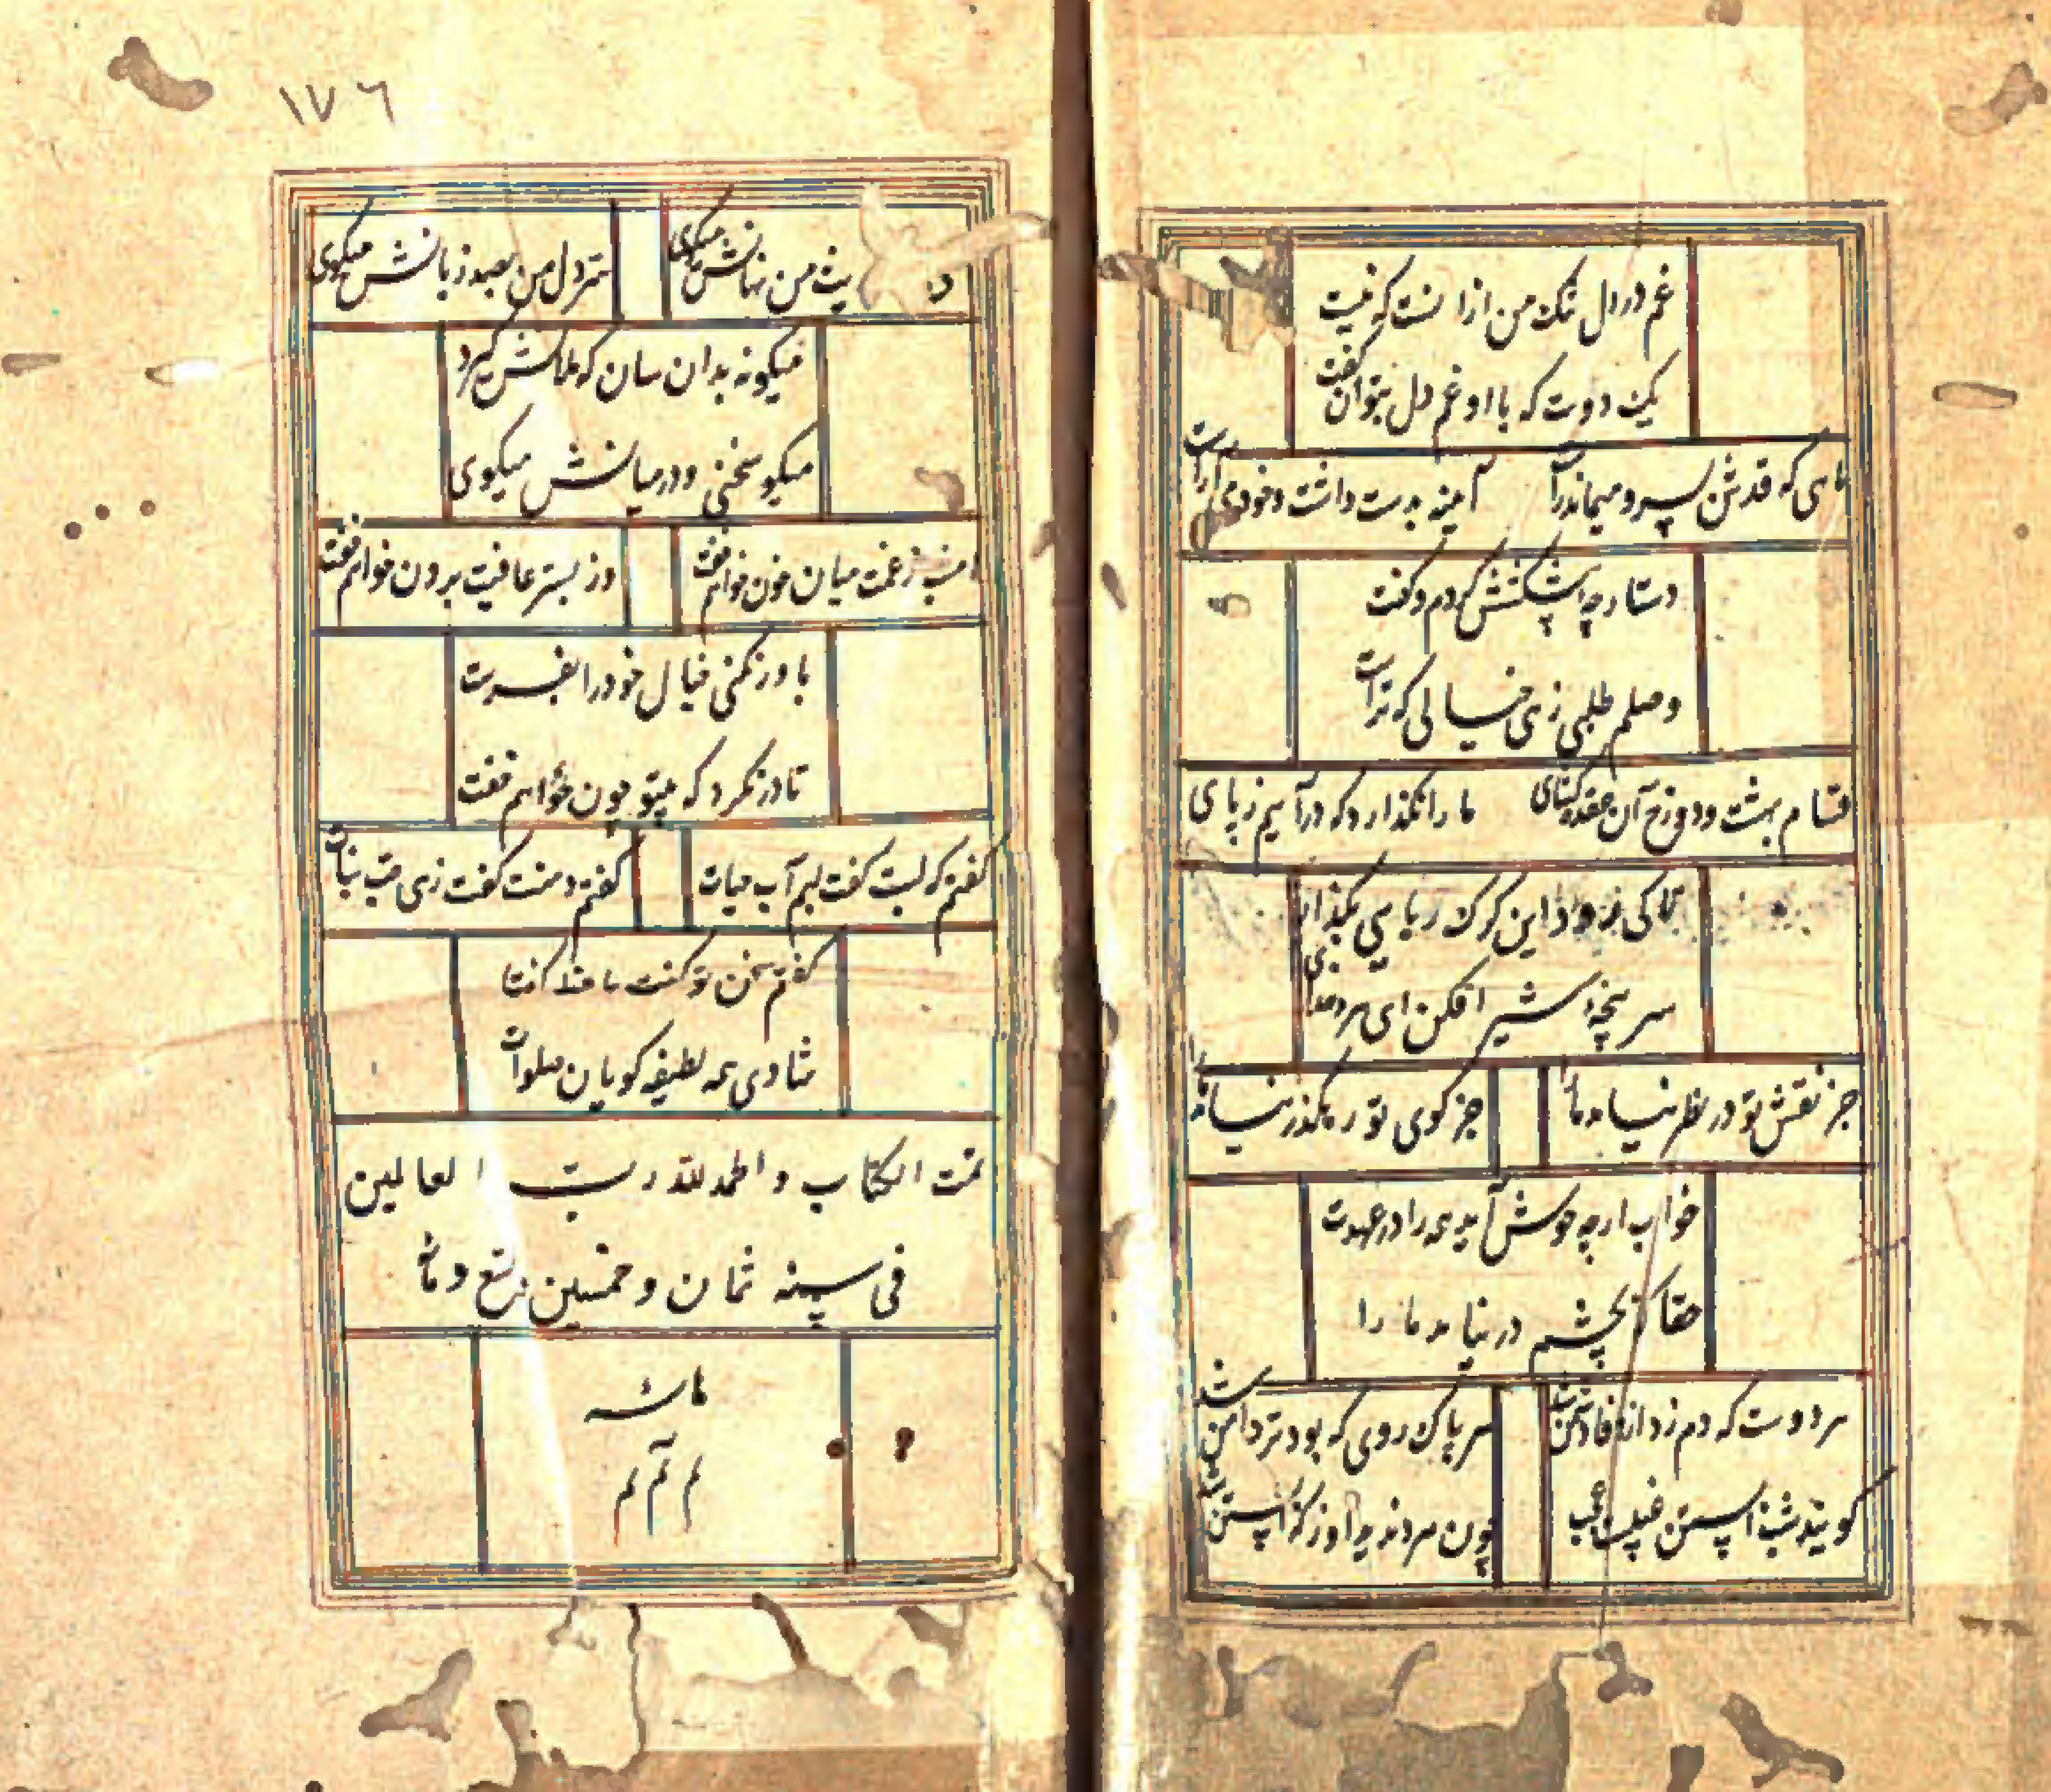 غم در دل تنک من از انست که نیست
یک دوست که با او غم دل بتوان کفت
ماهی که قدش بسرو میماند راست
آیینه بدست داشت و خود می آراست
دستارچه پیشکشش کردم و کفت
وصلم طلبی زهی خیالی که تراست
قسام بهشت و دوزخ آن عقده کشای
ما را نکذارد که درآییم ز پای
تا کی بود این کرک ربایی بنمای
سرپنجه شیر افکن ای
جز نقش تو در نظر نیامد ما را
جز کوی تو رهکذر نیامد ما را
خواب ارچه خوش آید همه را در عهدت
حقا که بچشم در نیامد ما را
هر دوست که دم زد از وفا دشمن شد
هر پاک روی که بود تردامن شد
کویند شب آبستن غیبست عجب
چون مرد ندید از که آبستن شد
۱۷۶
من نهانش میکوی
سر دل من بصد زبانش میکوی
میکو نه بدان سان که ملالش کیرد
میکو سخنی و در میانش میکوی
امشب ز غمت میان خون خواهم خفت
وز بستر عافیت برون خواهم خفت
باور نکنی خیال خود را بفرست
تا در نکرد که بیتو چون خواهم خفت
کفتم که لبت کفت لبم آب حیات
کفتم دهنت کفت زهی حب نبات
کفتم سخن تو کفت حافظ کفتا
شادی همه لطیفه کویان صلوات
تمت الکتاب و الحمد لله رب العالمین
فی سنه ثمان و خمسین و تسع
م م م